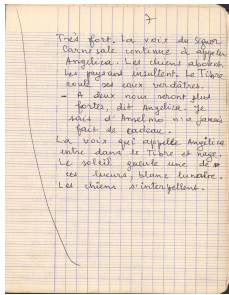 7
Très fort. La voix du Signor
Carnesale continue à appeler
Angelica. Les chiens aboient.
Les paysans insultent. Le Tibre
roule ses eaux verdâtres.
- A deux nous serons plus
fortes, dit Angelica. Je
sais d'Anselmo n'a jamais
fait de cadeau.
La voix qui appelle Angelica
entre dans le Tibre et nage.
Le soleil gueule une de
ses lueurs, blanc lunaire.
Les chiens s'interpellent.